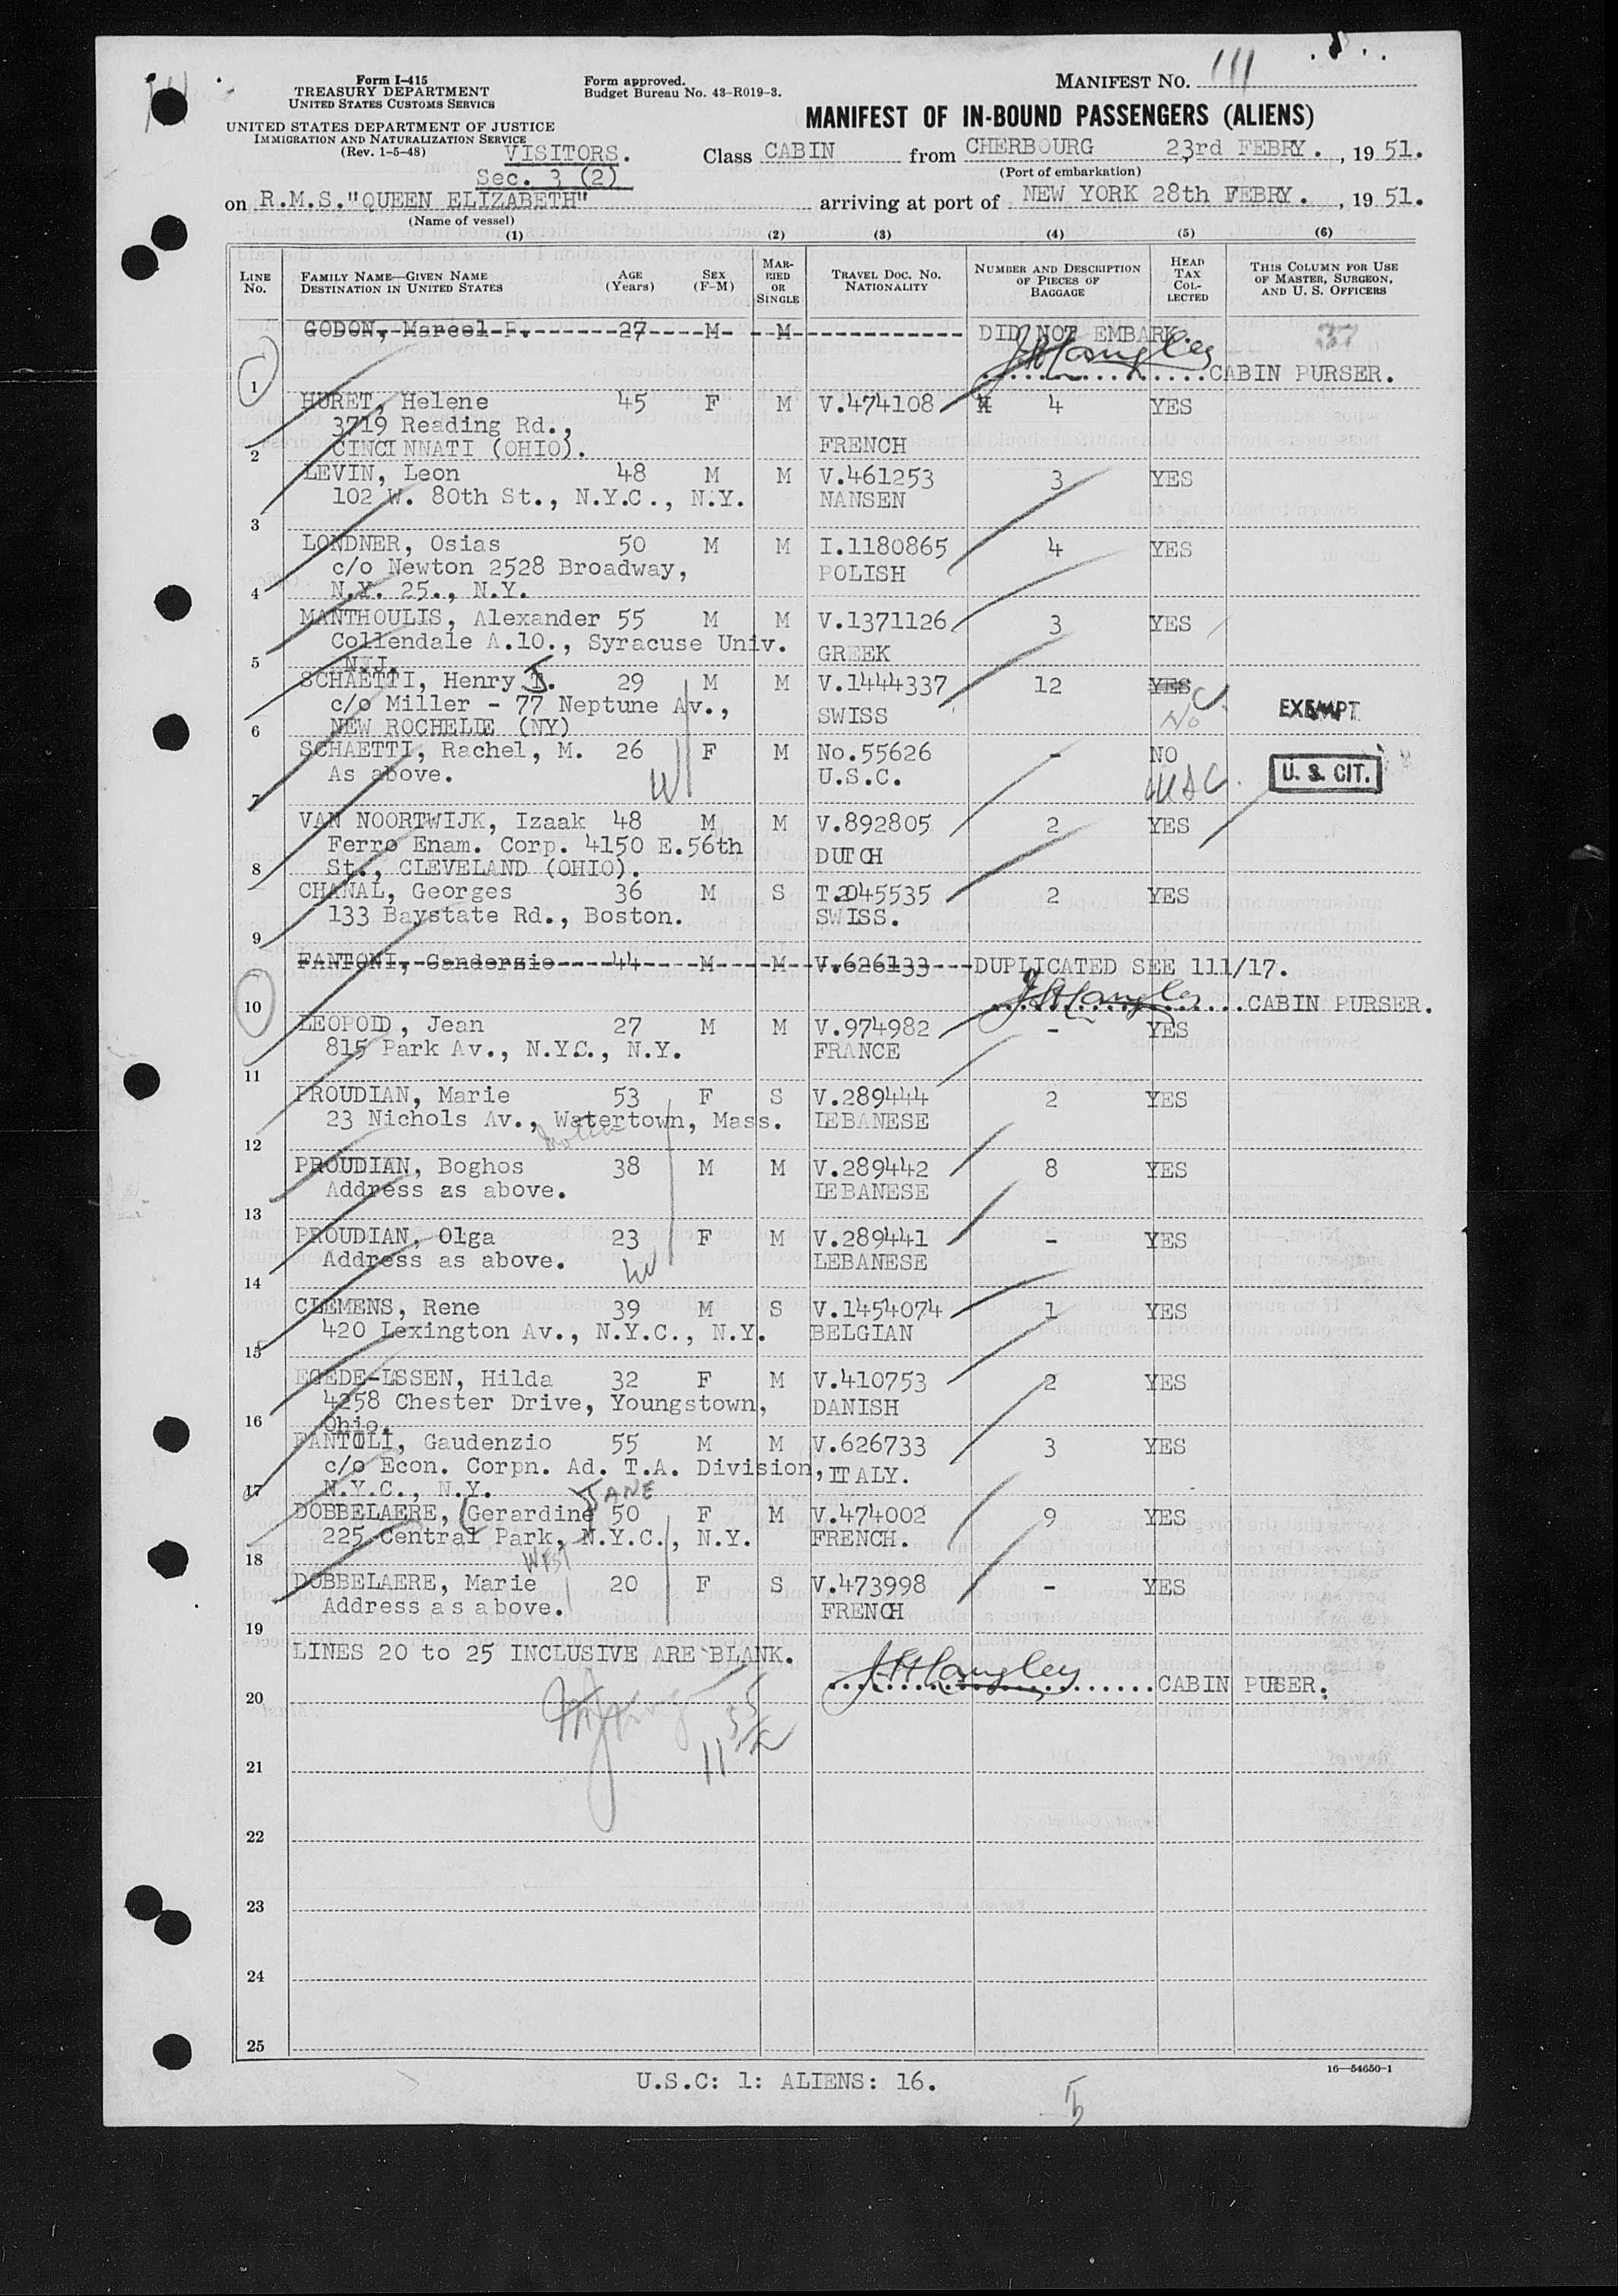 Form I-415
TREASURY DEPARTMENT
UNITED STATES CUSTOMS SERVICE
UNITED STATES DEPARTMENT OF JUSTICE
IMMIGRATION AND NATURALIZATION SERVICE
(Rev. 1-5-48)
Form approved.
Budget Bureau No. 43-R019-3.
MANIFEST NO. 111
MANIFEST OF IN-BOUND PASSENGERS (ALIENS)
VISITORS.
Sec. 3 (2)
Class CABIN from CHERBOURG 23rd FEBRY. , 19 51.
(Port of embarkation)
on R.M.S."QUEEN ELIZABETH" arriving at port of NEW YORK 28th FEBRY. , 19 51.
(Name of vessel)
(1) (2) (3) (4) (5) (6)
LINE No. FAMILY NAME—GIVEN NAME DESTINATION IN UNITED STATES AGE (Years) SEX (F-M) MARRIED OR SINGLE TRAVEL DOC. NO. NATIONALITY NUMBER AND DESCRIPTION OF PIECES OF BAGGAGE HEAD TAX COLLECTED THIS COLUMN FOR USE OF MASTER, SURGEON, AND U. S. OFFICERS
GODON, Marcel P. 27 M M DID NOT EMBARK. 37
1 J H Langley CABIN PURSER.
HURET, Helene 45 F M V.474108 4 YES
3719 Reading Rd.,
2 CINCINNATI (OHIO). FRENCH
LEVIN, Leon 48 M M V.461253 3 YES
102 W. 80th St., N.Y.C., N.Y. NANSEN
3
LONDNER, Osias 50 M M I.1180865 4 YES
c/o Newton 2528 Broadway, POLISH
4 N.Y. 25., N.Y.
MANTHOULIS, Alexander 55 M M V.1371126 3 YES
Collendale A.10., Syracuse Univ. GREEK
5 N.J.
SCHAETTI, Henry J. 29 M M V.1444337 12 YES No
c/o Miller - 77 Neptune Av., SWISS EXEMPT
6 NEW ROCHELLE (NY)
SCHAETTI, Rachel, M. 26 F M No.55626 - NO
As above. U.S.C. USC U. S. CIT.
7
VAN NOORTWIJK, Izaak 48 M M V.892805 2 YES
Ferro Enam. Corp. 4150 E.56th DUTCH
8 St., CLEVELAND (OHIO).
CHANAL, Georges 36 M S T.2045535 2 YES
133 Baystate Rd., Boston. SWISS.
9
FANTONI, Ganderzio 44 M M V.626133 DUPLICATED SEE 111/17.
10 J H Langley CABIN PURSER.
LEOPOLD, Jean 27 M M V.974982 - YES
815 Park Av., N.Y.C., N.Y. FRANCE
11
PROUDIAN, Marie 53 F S V.289444 2 YES
23 Nichols Av., Watertown, Mass. LEBANESE
12
PROUDIAN, Boghos 38 M M V.289442 8 YES
Address as above. LEBANESE
13
PROUDIAN, Olga 23 F M V.289441 - YES
Address as above. LEBANESE
14
CLEMENS, Rene 39 M S V.1454074 1 YES
420 Lexington Av., N.Y.C., N.Y. BELGIAN
15
EGEDE-LSSEN, Hilda 32 F M V.410753 2 YES
4258 Chester Drive, Youngstown, DANISH
16 Ohio.
FANTOLI, Gaudenzio 55 M M V.626733 3 YES
c/o Econ. Corpn. Ad. T.A. Division, ITALY.
17 N.Y.C., N.Y.
JANE
DOBBELAERE, (Gerardine) 50 F M V.474002 9 YES
225 Central Park, N.Y.C., N.Y. FRENCH.
18 WEST
DOBBELAERE, Marie 20 F S V.473998 - YES
Address as above. FRENCH
19
LINES 20 to 25 INCLUSIVE ARE BLANK.
20 J H Langley CABIN PURSER.
21
22
23
24
25
16—54650-1
U.S.C: 1: ALIENS: 16.